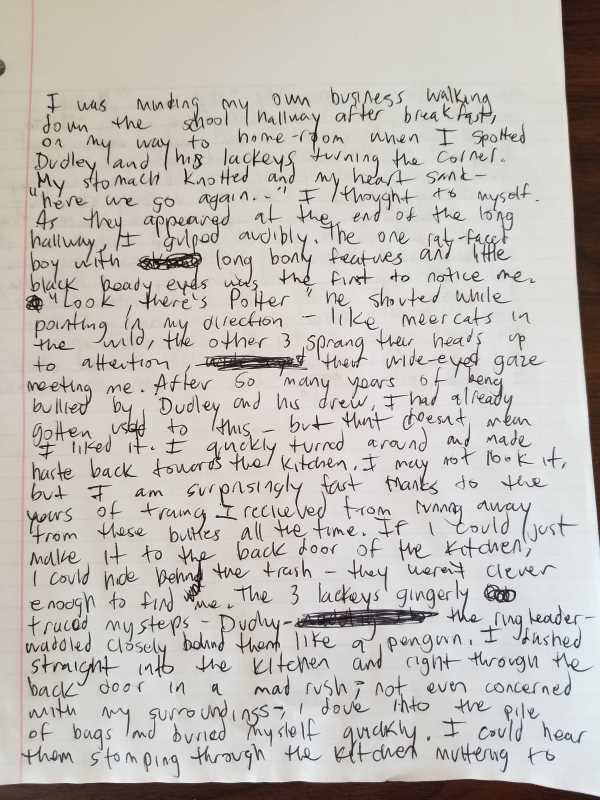 I was minding my own business walking
down the school hallway after breakfast,
on my way to home-room when I spotted
Dudley and his lackeys turning the corner.
My stomach knotted and my heart sank-
"here we go again.." I thought to myself.
As they appeared at the end of the long
hallway, I gulped audibly. The one rat-faced
boy with long bony features and little
black beady eyes was the first to notice me.
"Look, there's Potter" he shouted while
pointing in my direction - like meercats in
the wild, the other 3 sprang their heads up
to attention, their wide-eyed gaze
meeting me. After so many years of being
bullied by Dudley and his crew, I had already
gotten used to this - but that doesn't mean
I liked it. I quickly turned around and made
haste back towards the kitchen. I may not look it,
but I am surprisingly fast thanks to the
years of traing I recieved from runing away
from these bullies all the time. If I could just
make it to the back door of the kitchen,
I could hide behind the trash - they weren't clever
enough to find me. The 3 lackeys gingerly
traced my steps - Dudley- the ringleader-
waddled closely behind them like a penguin. I dashed
straight into the kitchen and right through the
back door in a mad rush; not even concerned
with my surroundings-, i dove into the pile
of bags and buried myself quickly. I could hear
them stomping through the kitchen muttering to